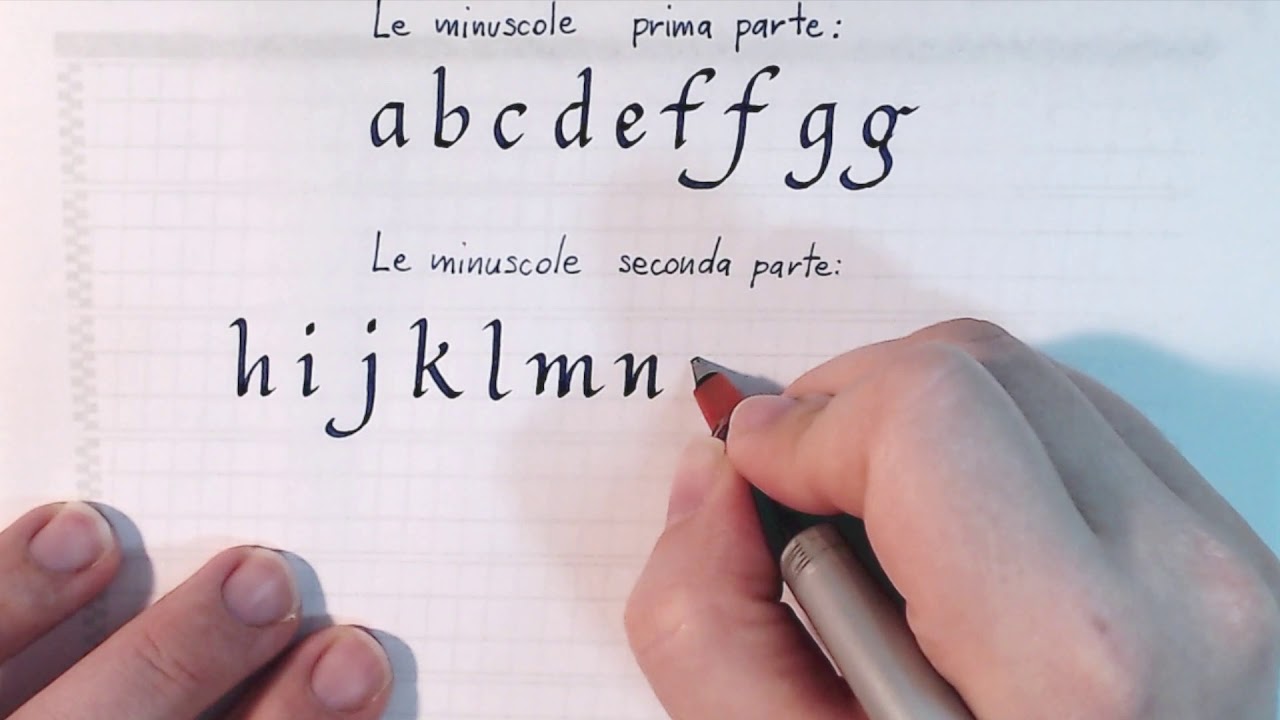 Le minuscole prima parte:
a b c d e f f g g
Le minuscole seconda parte:
h i j k l m n